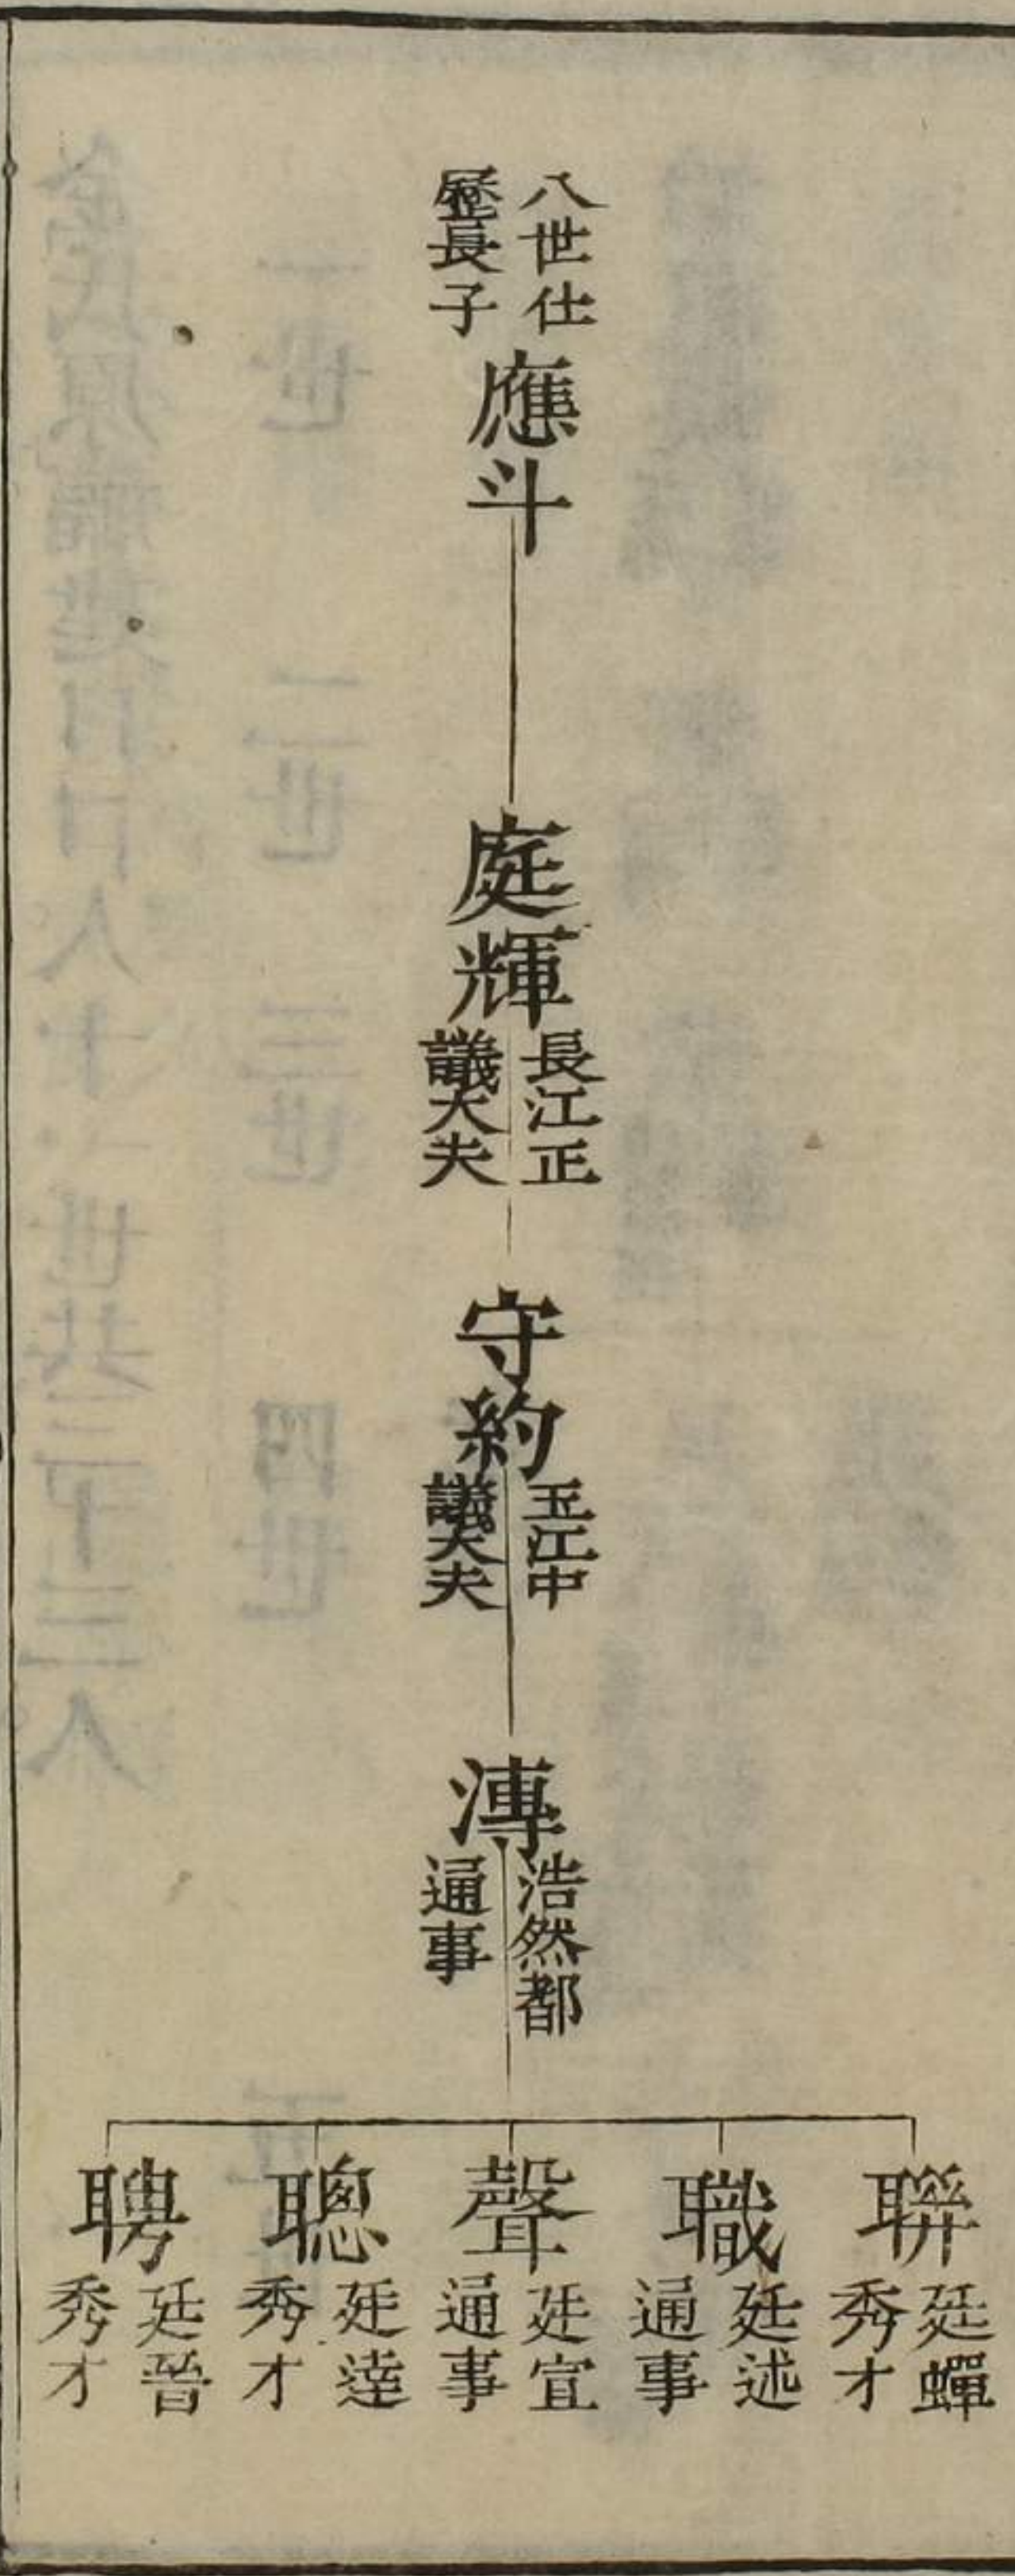 八世仕
歷長子
應斗
庭輝
長江正
議大夫
守約
玉江中
議大夫
漙
浩然都
通事
聨
廷蟬
秀才
職
廷述
通事
聲
廷宜
通事
聰
廷達
秀才
聘
廷晉
秀才